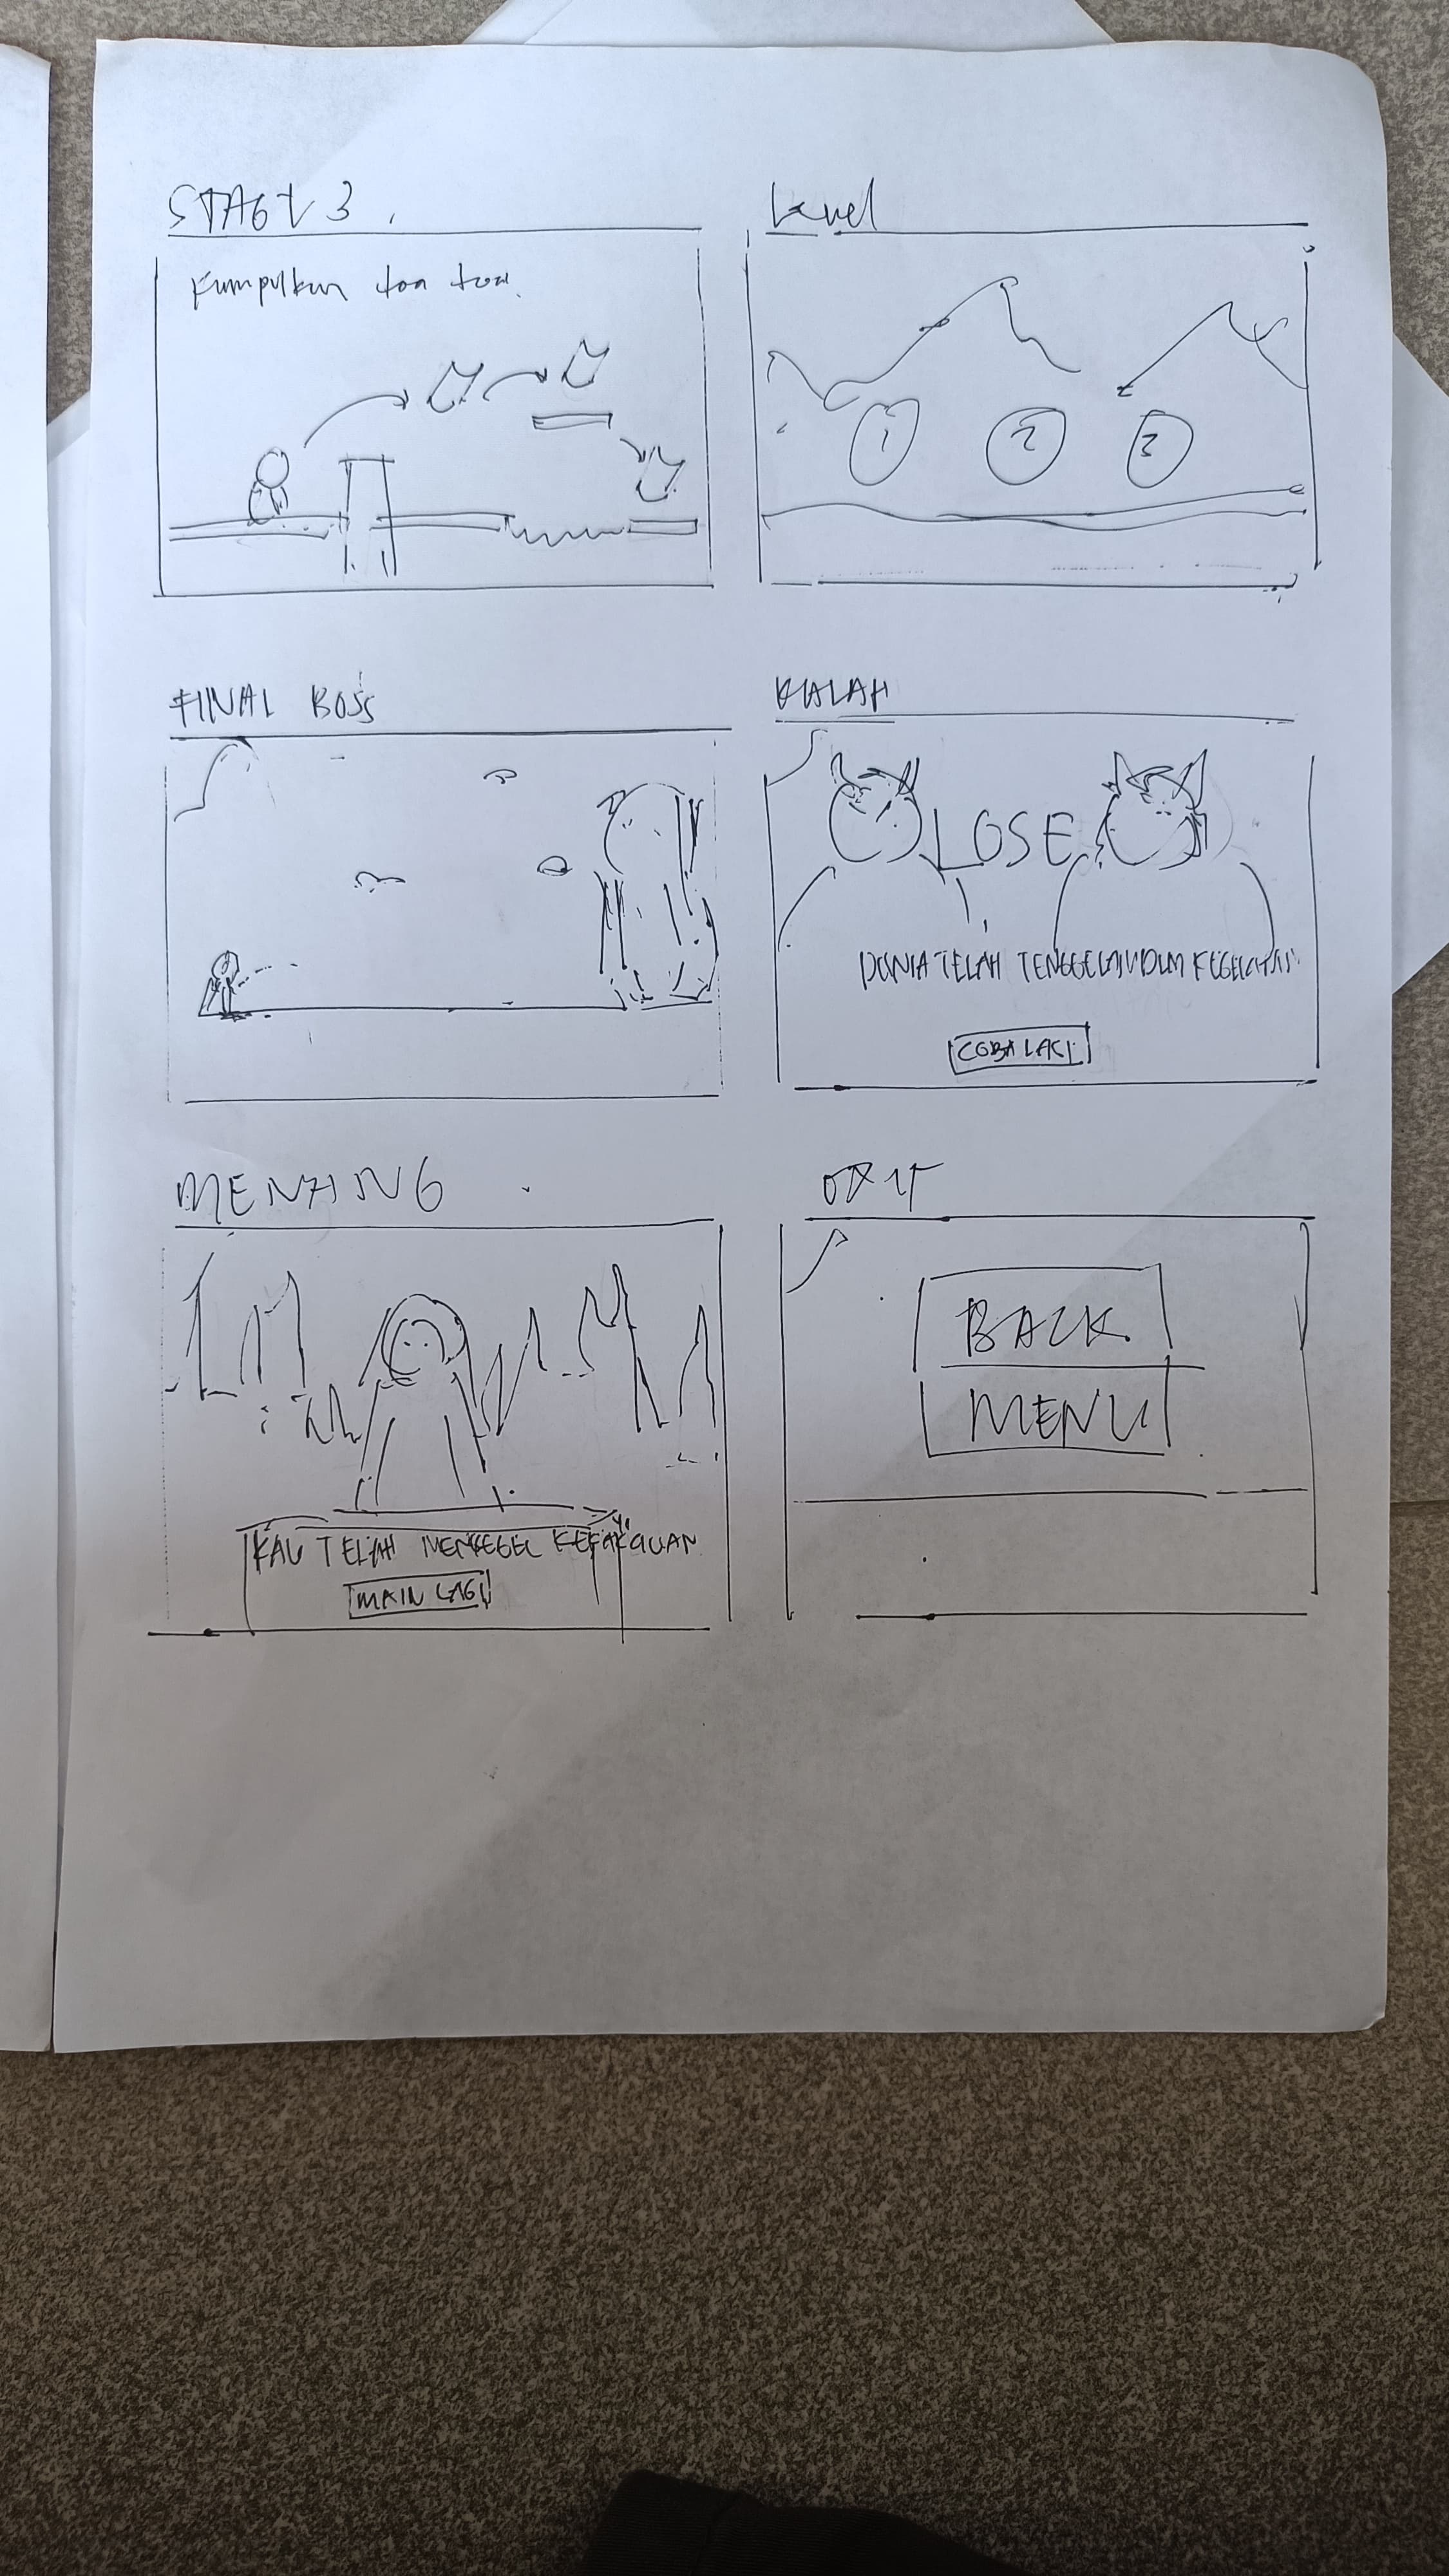 STAGE 3
Kumpulkan
Level
1
2
3
FINAL BOSS
KALAH
LOSE
DUNIA TELAH TENGGELAM DLM KEGELAPAN
COBA LAGI
MENANG
KAU TELAH MENYEGEL
MAIN LAGI
BACK
MENU